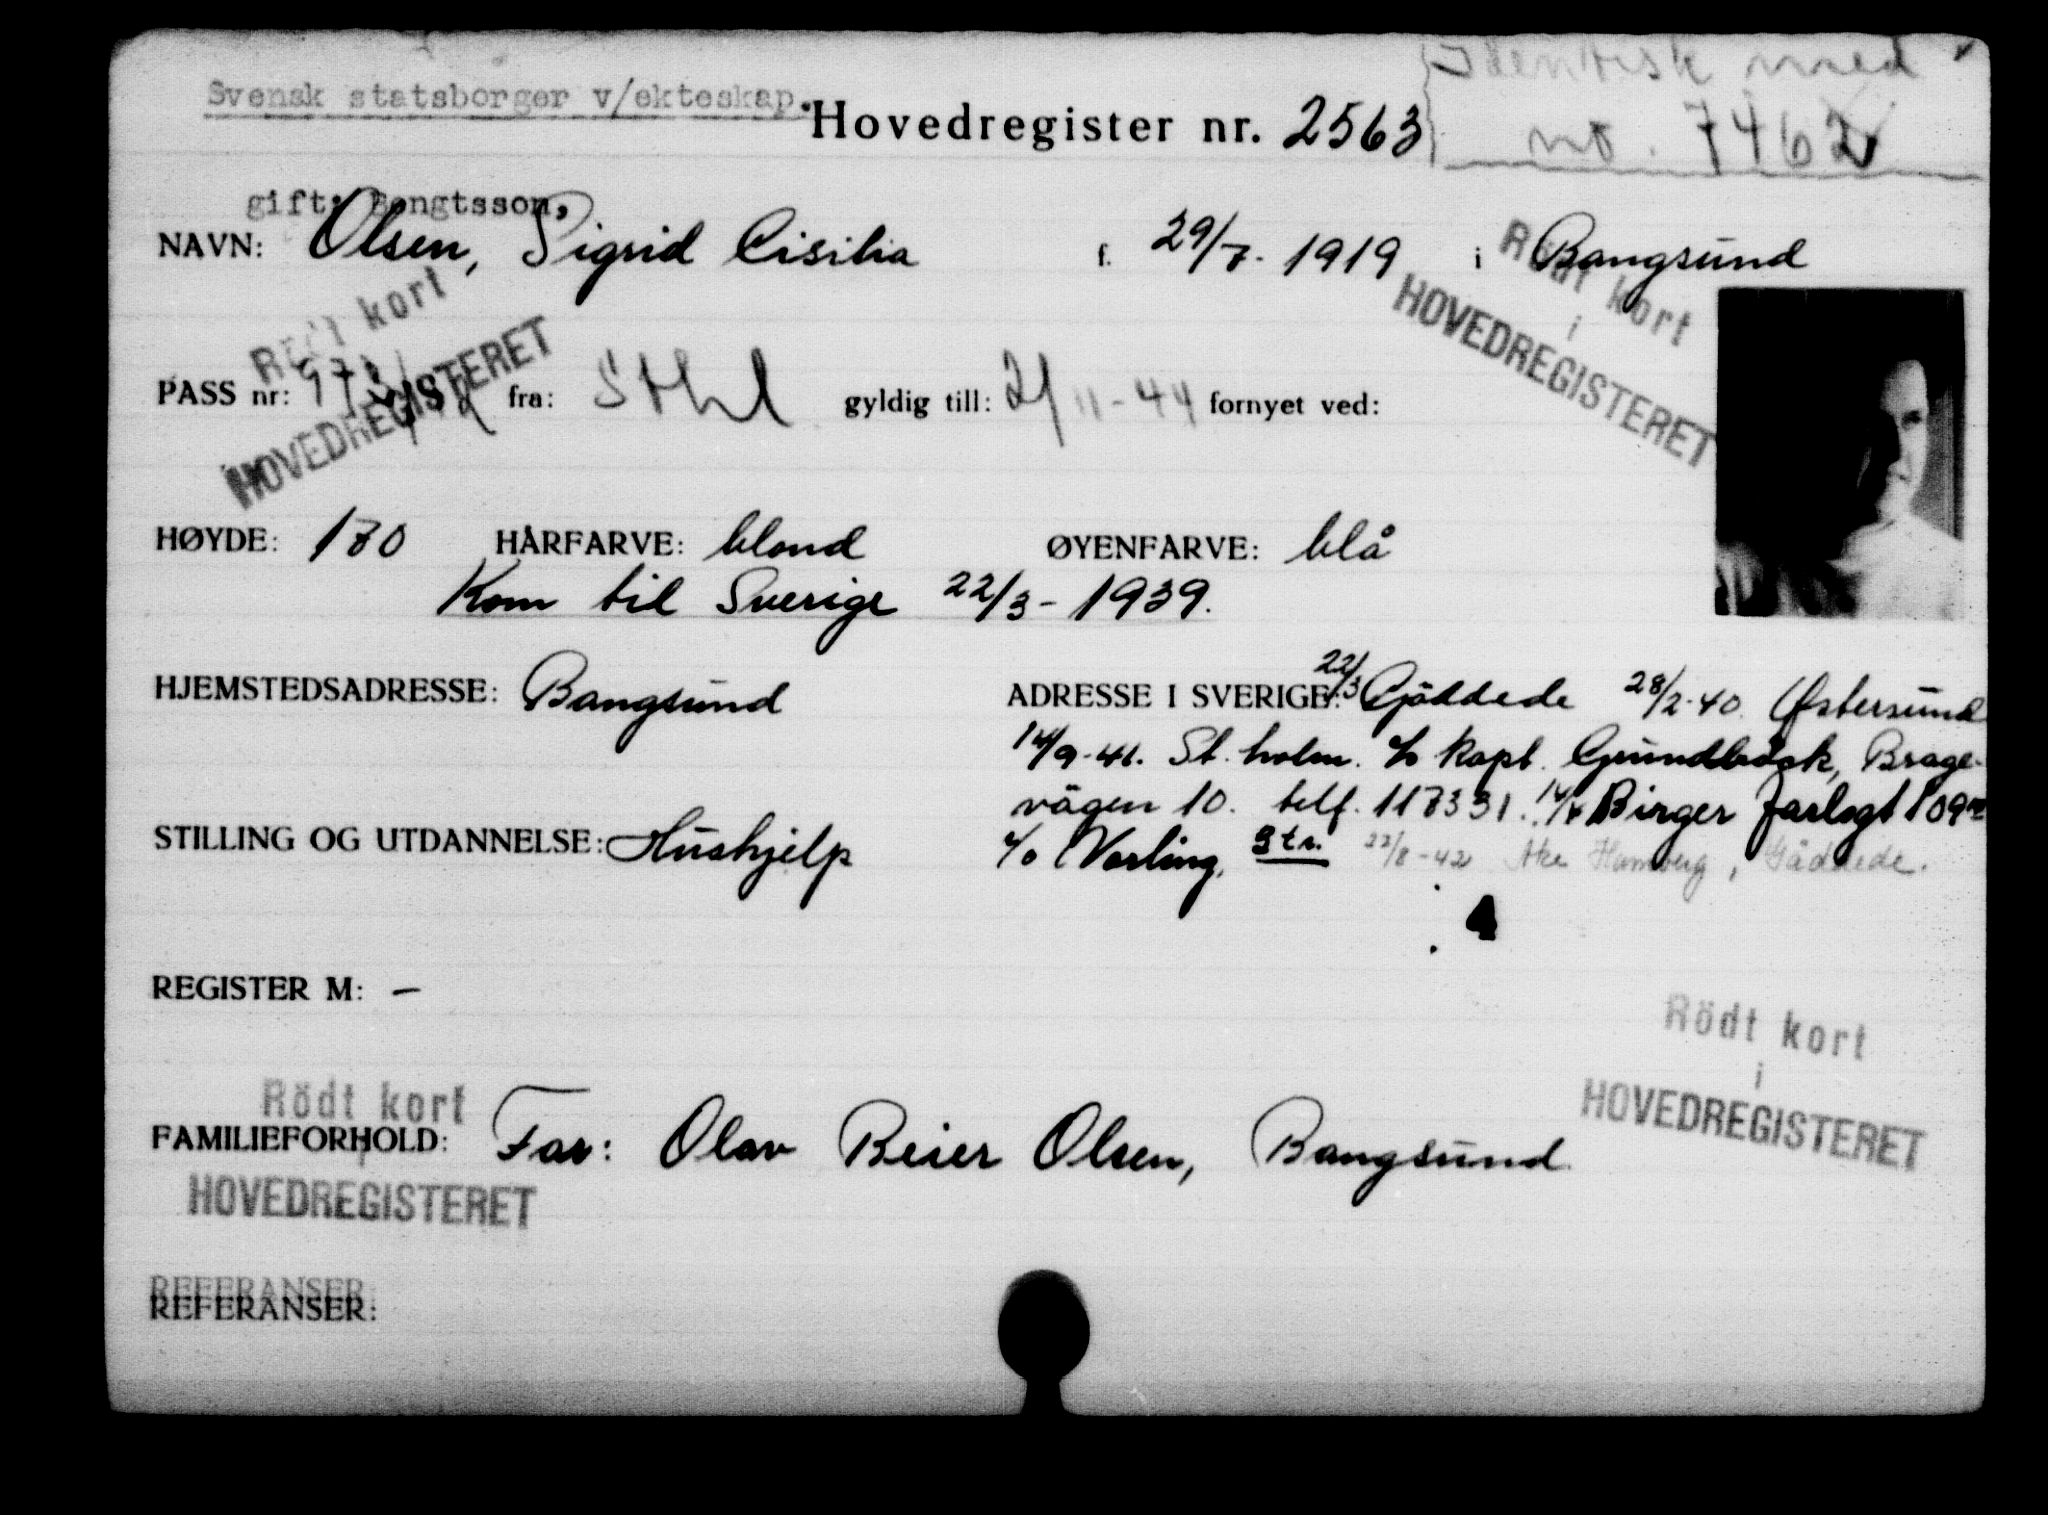 Identisk med
Svensk statsborger v/ekteskap.
Hovedregister nr. 2563 no. 7462
gift: Bengtsson,
NAVN: Olsen, Sigrid Cisilia f. 29/7. 1919 i Bangsund
Rödt kort
i
HOVEDREGISTERET
Rödt kort
HOVEDREGISTERET
PASS nr: fra: Sthl gyldig till: 2/11-44 fornyet ved:
HØYDE: 170 HÅRFARVE: blond ØYENFARVE: blå
Kom til Sverige 22/3- 1939.
HJEMSTEDSADRESSE: Bangsund
ADRESSE I SVERIGE: 22/3 Gjäddede 28/2-40. Østersund
14/9-41. St.holm. c/o Kapt. Brage-
vägen 10. telf. 117331. 14/4 Birger Jarlsgt 109
c/o Vorling, 3 tr. 22/8-42 Åke Hamberg, Gäddede.
STILLING OG UTDANNELSE: Hushjelp
REGISTER M: -
Rödt kort
i
HOVEDREGISTERET
Rödt kort
FAMILIEFORHOLD: Far: Olav Beier Olsen, Bangsund
HOVEDREGISTERET
REFERANSER
REFERANSER: